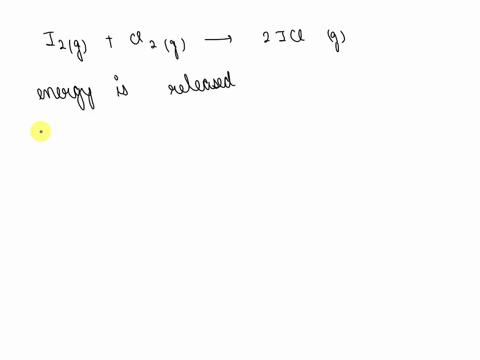 I2(g) + Cl2(g) → 2ICl (g)
energy is released